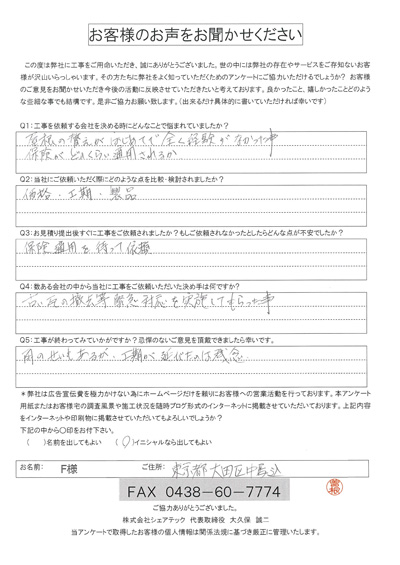 お客様のお声をお聞かせください
この度は弊社に工事をご用命いただき、誠にありがとうございました。世の中には弊社の存在やサービスをご存知ないお客
様が沢山いらっしゃいます、その方たちに弊社をよく知っていただくためのアンケートにご協力いただけるでしょうか？ お客様
のご意見をお聞かせいただき今後の活動に反映させていただきたいと考えております。良かったこと、嬉しかったことどのよう
な些細な事でも結構です。是非ご協力お願い致します。（出来るだけ具体的に書いていただければ幸いです）
Q1：工事を依頼する会社を決める時にどんなことで悩まれていましたか？
屋根の替えがはじめてで全く経験がなかった事
保険がどれくらい適用されるか
Q2：当社にご依頼いただく際にどのような点を比較・検討されましたか？
価格・工期・製品
Q3：お見積り提出後すぐに工事をご依頼されましたか？もしご依頼されなかったとしたらどんな点が不安でしたか？
保険適用を待って依頼
Q4：数ある会社の中から当社に工事をご依頼いただいた決め手は何ですか？
古い瓦の撤去等緊急対応を実施してもらった事
Q5：工事が終わってみていかがですか？忌憚のないご意見を頂戴できましたら幸いです。
雨のせいもあるが、工期が延びたのは残念
＊弊社は広告宣伝費を極力かけない為にホームページだけを頼りにお客様への営業活動を行っております。本アンケート
用紙またはお客様宅の調査風景や施工状況を随時ブログ形式のインターネットに掲載させていただいております。上記内容
をインターネットや印刷物に掲載させていただいてもよろしいでしょうか？
下記の中から〇印をお付下さい。
（ ）名前を出してもよい （〇）イニシャルなら出してもよい
お名前： F様 ご住所： 東京都大田区中馬込
FAX 0438－60－7774
ご協力ありがとうございました。
株式会社シェアテック 代表取締役 大久保 誠二
当アンケートで取得したお客様の個人情報は関係法規に基づき厳正に管理いたします。